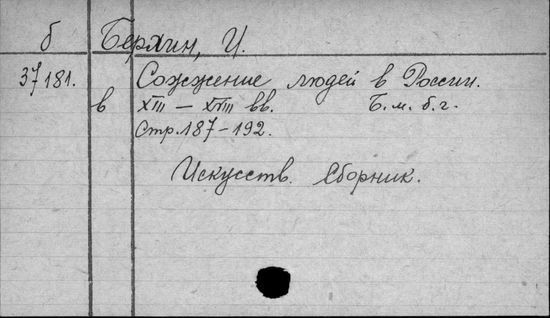 б Берхин, И.
37181. Сожжение людей в России.
в XIII — XVIII вв. Б.м. б.г.
Стр. 187-192.
Искусств. Сборник.